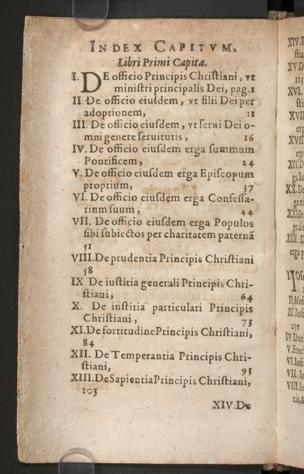 INDEX CAPITVM.
Libri Primi Capita.
I. DE officio Principis Christiani, vt
ministri principalis Dei, pag.1
II De officio eiusdem, vt filii Dei per
adoptionem, 11
III. De officio eiusdem, vt serui Dei o-
mni genere seruitutis, 16
IV. De officio eiusdem erga summum
Pontificem, 24
V. De officio eiusdem erga Episcopum
proprium, 37
VI. De officio eiusdem erga Confessa-
rium suum, 44
VII. De officio eiusdem erga Populos
sibi subiectos per charitatem paternã
51
VIII. De prudentia Principis Christiani
58
IX De iustitia generali Principis Chri-
stiani, 64
X. De iustitia particulari Principis
Christiani, 73
XI. De fortitudine Principis Christiani,
84
XII. De Temperantia Principis Chri-
stiani, 93
XIII. De Sapientia Principis Christiani,
103
XIV. De